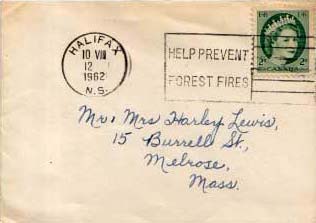 HALIFAX
10 VIII
12
1962
N.S.
HELP PREVENT
FOREST FIRES
2¢ 2¢
CANADA
Mr. Mrs Harley Lewis,
15 Burrell St.,
Melrose,
Mass.